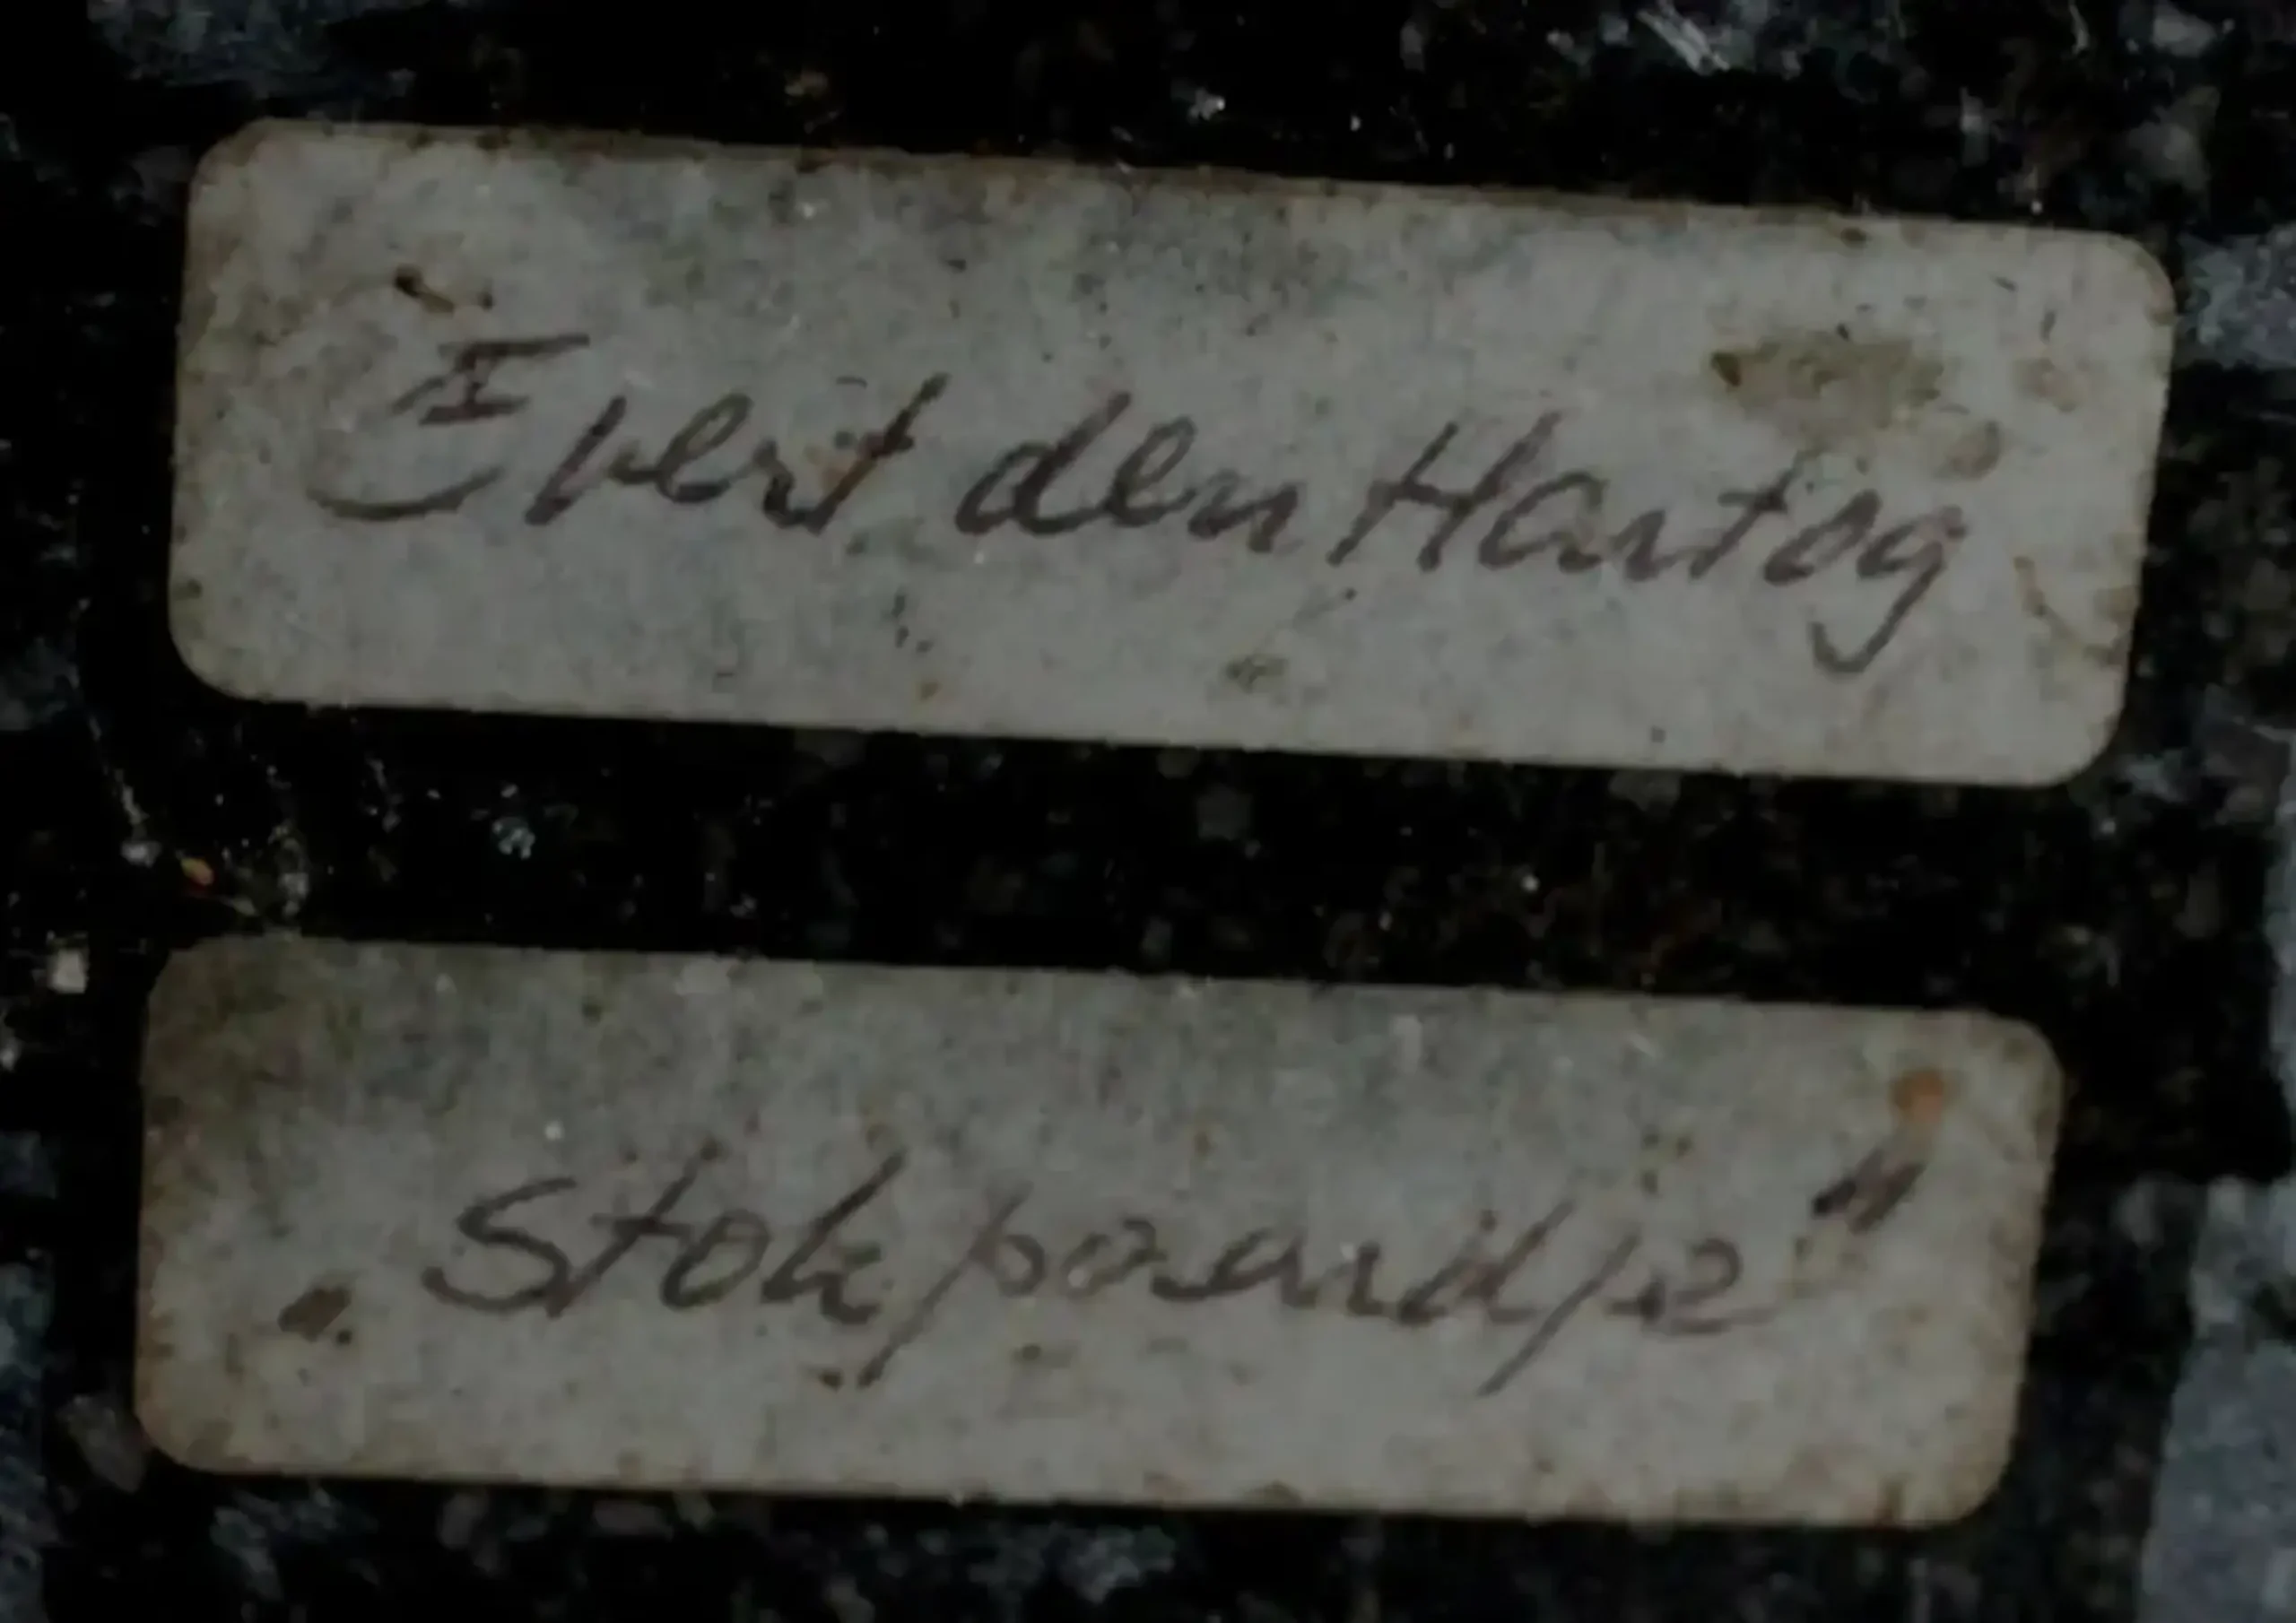 Evert den Hartog
„Stokpaardje"